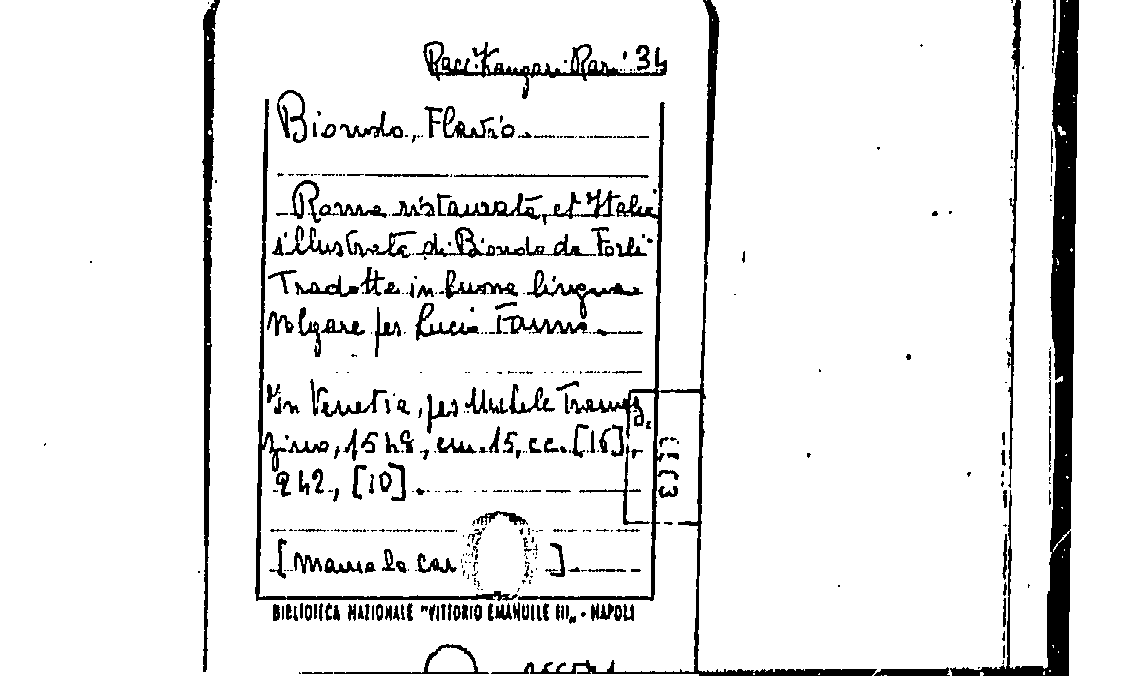 Biondo, Flavio.
Roma ristaurata, et Italia
illustrata di Biondo da Forlì
Tradotte in buona lingua
volgare per Lucio Fauno.
In Venetia, per Michele Tramez,
zino, 1548, cm. 15, cc. [16],
242, [10].
[Manca la car ].
BIBLIOTECA NAZIONALE "VITTORIO EMANUELE III„ - NAPOLI